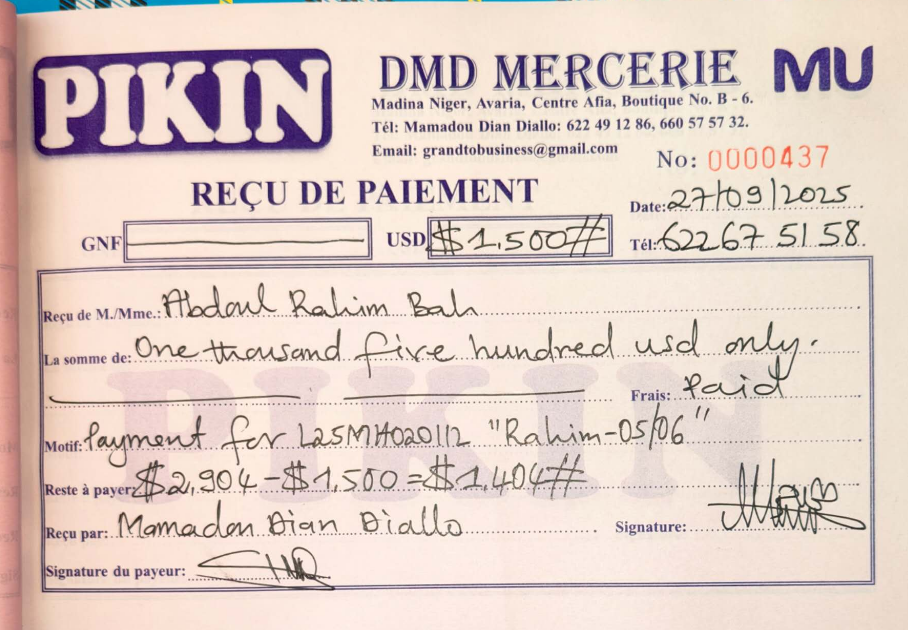 PIKIN
DMD MERCERIE
MU
Madina Niger, Avaria, Centre Afia, Boutique No. B - 6.
Tél: Mamadou Dian Diallo: 622 49 12 86, 660 57 57 32.
Email: grandtobusiness@gmail.com
No: 0000437
REÇU DE PAIEMENT
Date: 27/09/2025
GNF
USD $1,500#
Tél: 62267 51 58
Reçu de M./Mme.: Abdoul Rahim Bah
La somme de: One thousand five hundred usd only.
Frais: Paid
Motif: Payment for L25MH020112 "Rahim-05/06"
Reste à payer $2,904 - $1,500 = $1,404#
Reçu par: Mamadou Dian Diallo
Signature:
Signature du payeur:
PIKIN